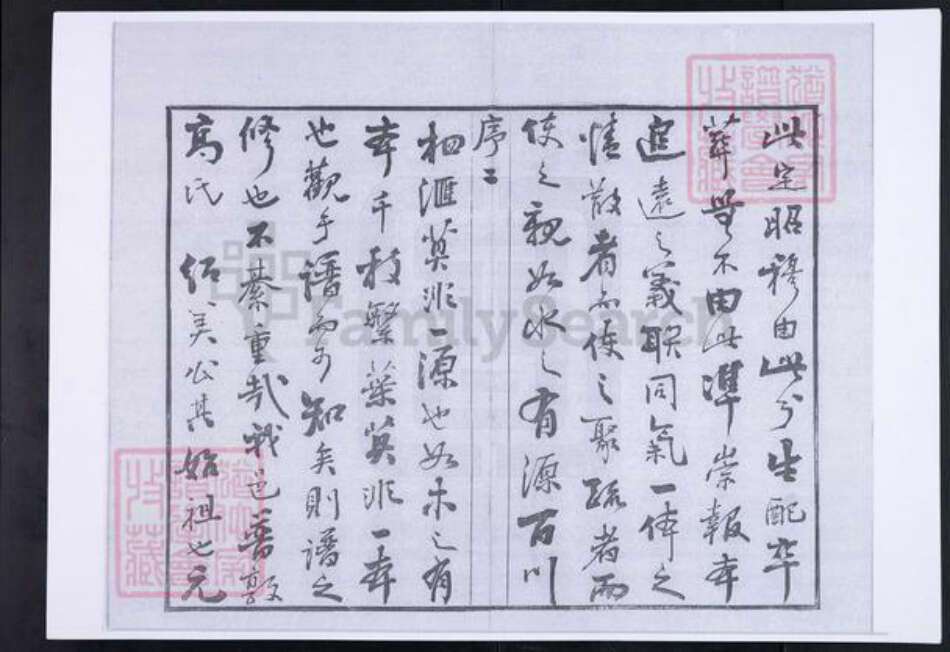 此定昭穆由此分生配卒
葬無不由此準崇報本
追遠之義联同氣一体之
情散者而使之聚疏者而
使之親如水之有源百川
序二
汇莫非一源也如木之有
本千枝繁葉莫非一本
也觀乎譜而可知矣則譜之
修也不綦重哉我邑普敦
高氏紹美公其始祖也元
FamilySearch